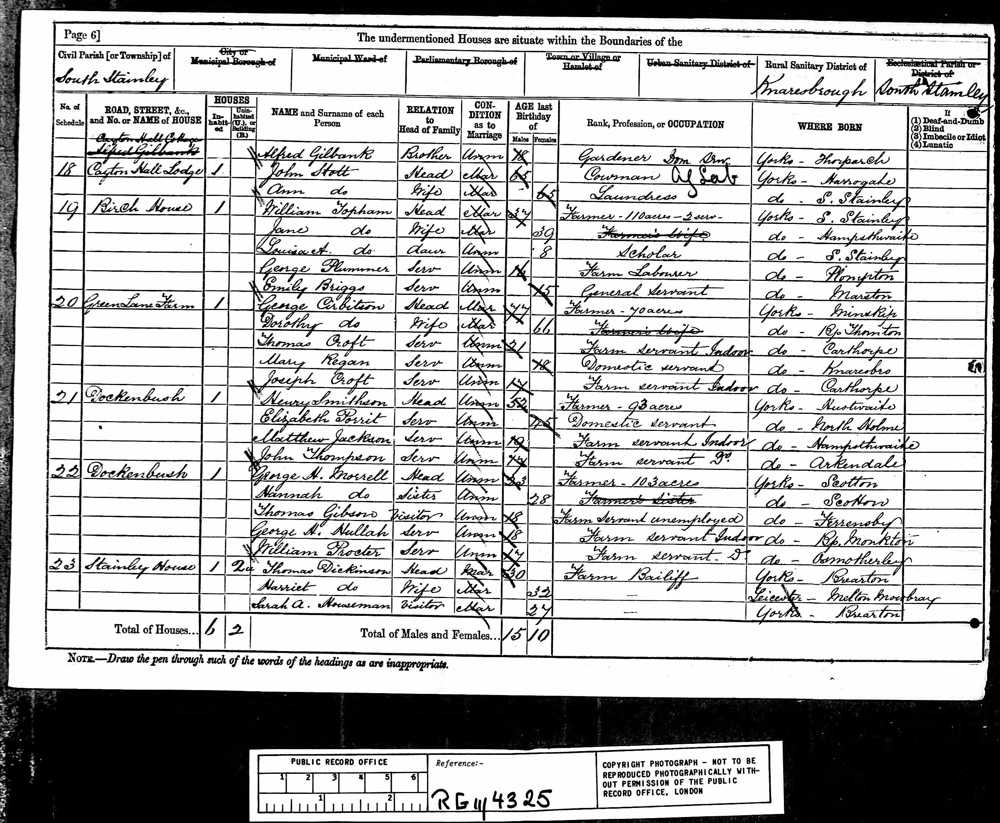 Page 6]
The undermentioned Houses are situate within the Boundaries of the
Civil Parish [or Township] of
South Stainley
City or
Municipal Borough of
Municipal Ward of
Parliamentary Borough of
Town or Village or
Hamlet of
Urban Sanitary District of
Rural Sanitary District of
Knaresbrough
Ecclesiastical Parish or
District of
South Stainley
No. of Schedule
ROAD, STREET, &c., and No. or NAME of HOUSE
HOUSES
Inhabited
Uninhabited (U.), or Building (B.)
NAME and Surname of each Person
RELATION to Head of Family
CONDITION as to Marriage
AGE last Birthday of
Males
Females
Rank, Profession, or OCCUPATION
WHERE BORN
If
(1) Deaf-and-Dumb
(2) Blind
(3) Imbecile or Idiot
(4) Lunatic
Cayton Hall Cottage
Alfred Gilbank
Alfred Gilbank Brother Unm 18 Gardener Dom Yorks -
18 Cayton Hall Lodge 1 John Stott Head Mar 65 Cowman Ag Lab Yorks - Harrogate
Ann do Wife Mar 65 Laundress do - S. Stainley
19 Birch House 1 William Topham Head Mar 37 Farmer - 110 acres - 2 serv- Yorks - S. Stainley
Jane do Wife Mar 39 Farmer's Wife do - Hampsthwaite
Louisa A. do daur Unm 8 Scholar do - S. Stainley
George Plummer Serv Unm 16 Farm Labourer do - Plompton
Emily Briggs Serv Unm 15 General Servant do - Marston
20 Green Lane Farm 1 George Head Mar 77 Farmer - 70 acres Yorks - Minskip
Dorothy do Wife Mar 66 Farmer's Wife do - Bp Thornton
Thomas Croft Serv Unm 21 Farm servant Indoor do - Carthorpe
Mary Regan Serv Unm 18 Domestic servant do - Knaresbro
Joseph Croft Serv Unm 17 Farm servant Indoor do - Carthorpe
21 Dockenbush 1 Henry Smithson Head Unm 52 Farmer - 93 acres Yorks - Hustwaite
Elizabeth Porrit Serv Unm 45 Domestic servant do - North Holme
Matthew Jackson Serv Unm 19 Farm servant Indoor do - Hampsthwaite
John Thompson Serv Unm 17 Farm servant Do do - Arkendale
22 Dockenbush 1 George H. Morrell Head Unm 23 Farmer - 103 acres Yorks - Scotton
Hannah do Sister Unm 28 Farmer's Sister do - Scotton
Thomas Gibson Visitor Unm 18 Farm Servant unemployed do - Ferrensby
George H. Hullah Serv Unm 18 Farm servant Indoor do - Bp. Monkton
William Procter Serv Unm 17 Farm servant - Do do - Osmotherley
23 Stainley House 1 2u Thomas Dickinson Head Mar 30 Farm Bailiff Yorks - Brearton
Harriet do Wife Mar 32 — Leicester - Melton Mowbray
Sarah A. Houseman Visitor Mar 27 — Yorks - Brearton
Total of Houses... 6 2 Total of Males and Females... 15 10
NOTE.—Draw the pen through such of the words of the headings as are inappropriate.
PUBLIC RECORD OFFICE
1 2 3 4 5 6
1 2
Reference:-
RG 11/4325
COPYRIGHT PHOTOGRAPH - NOT TO BE
REPRODUCED PHOTOGRAPHICALLY WITH-
OUT PERMISSION OF THE PUBLIC
RECORD OFFICE, LONDON